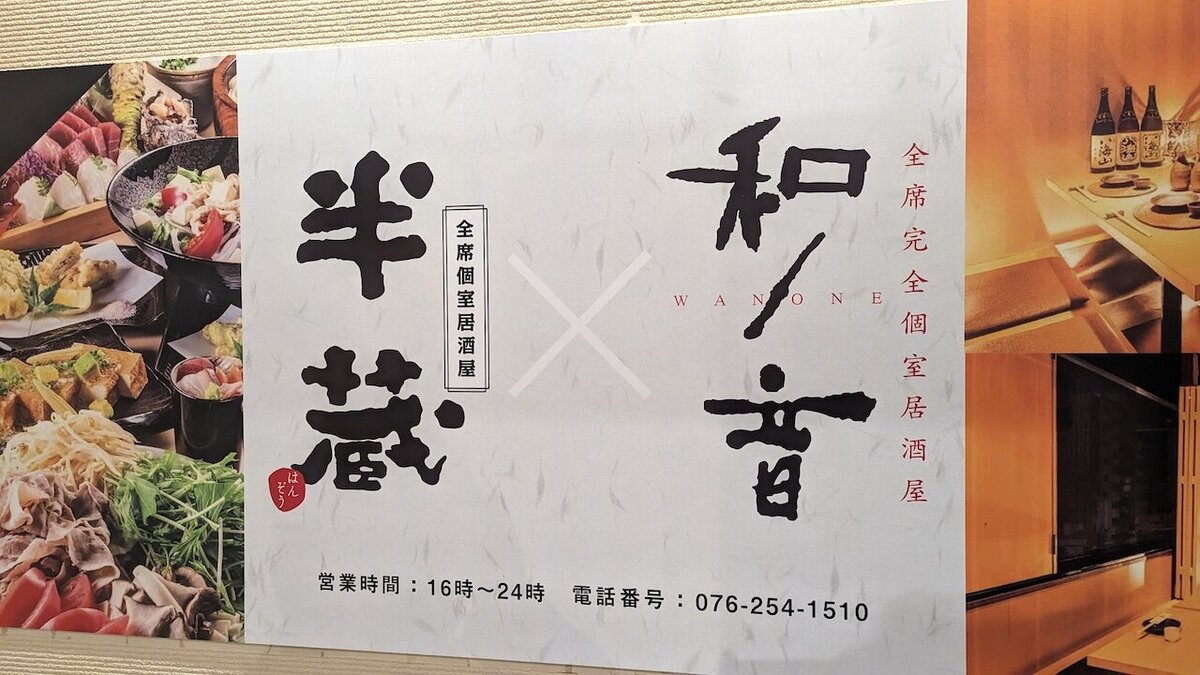 全席完全個室居酒屋
和ノ音
WANONE
全席個室居酒屋
半蔵
はんぞう
営業時間：16時～24時 電話番号：076-254-1510